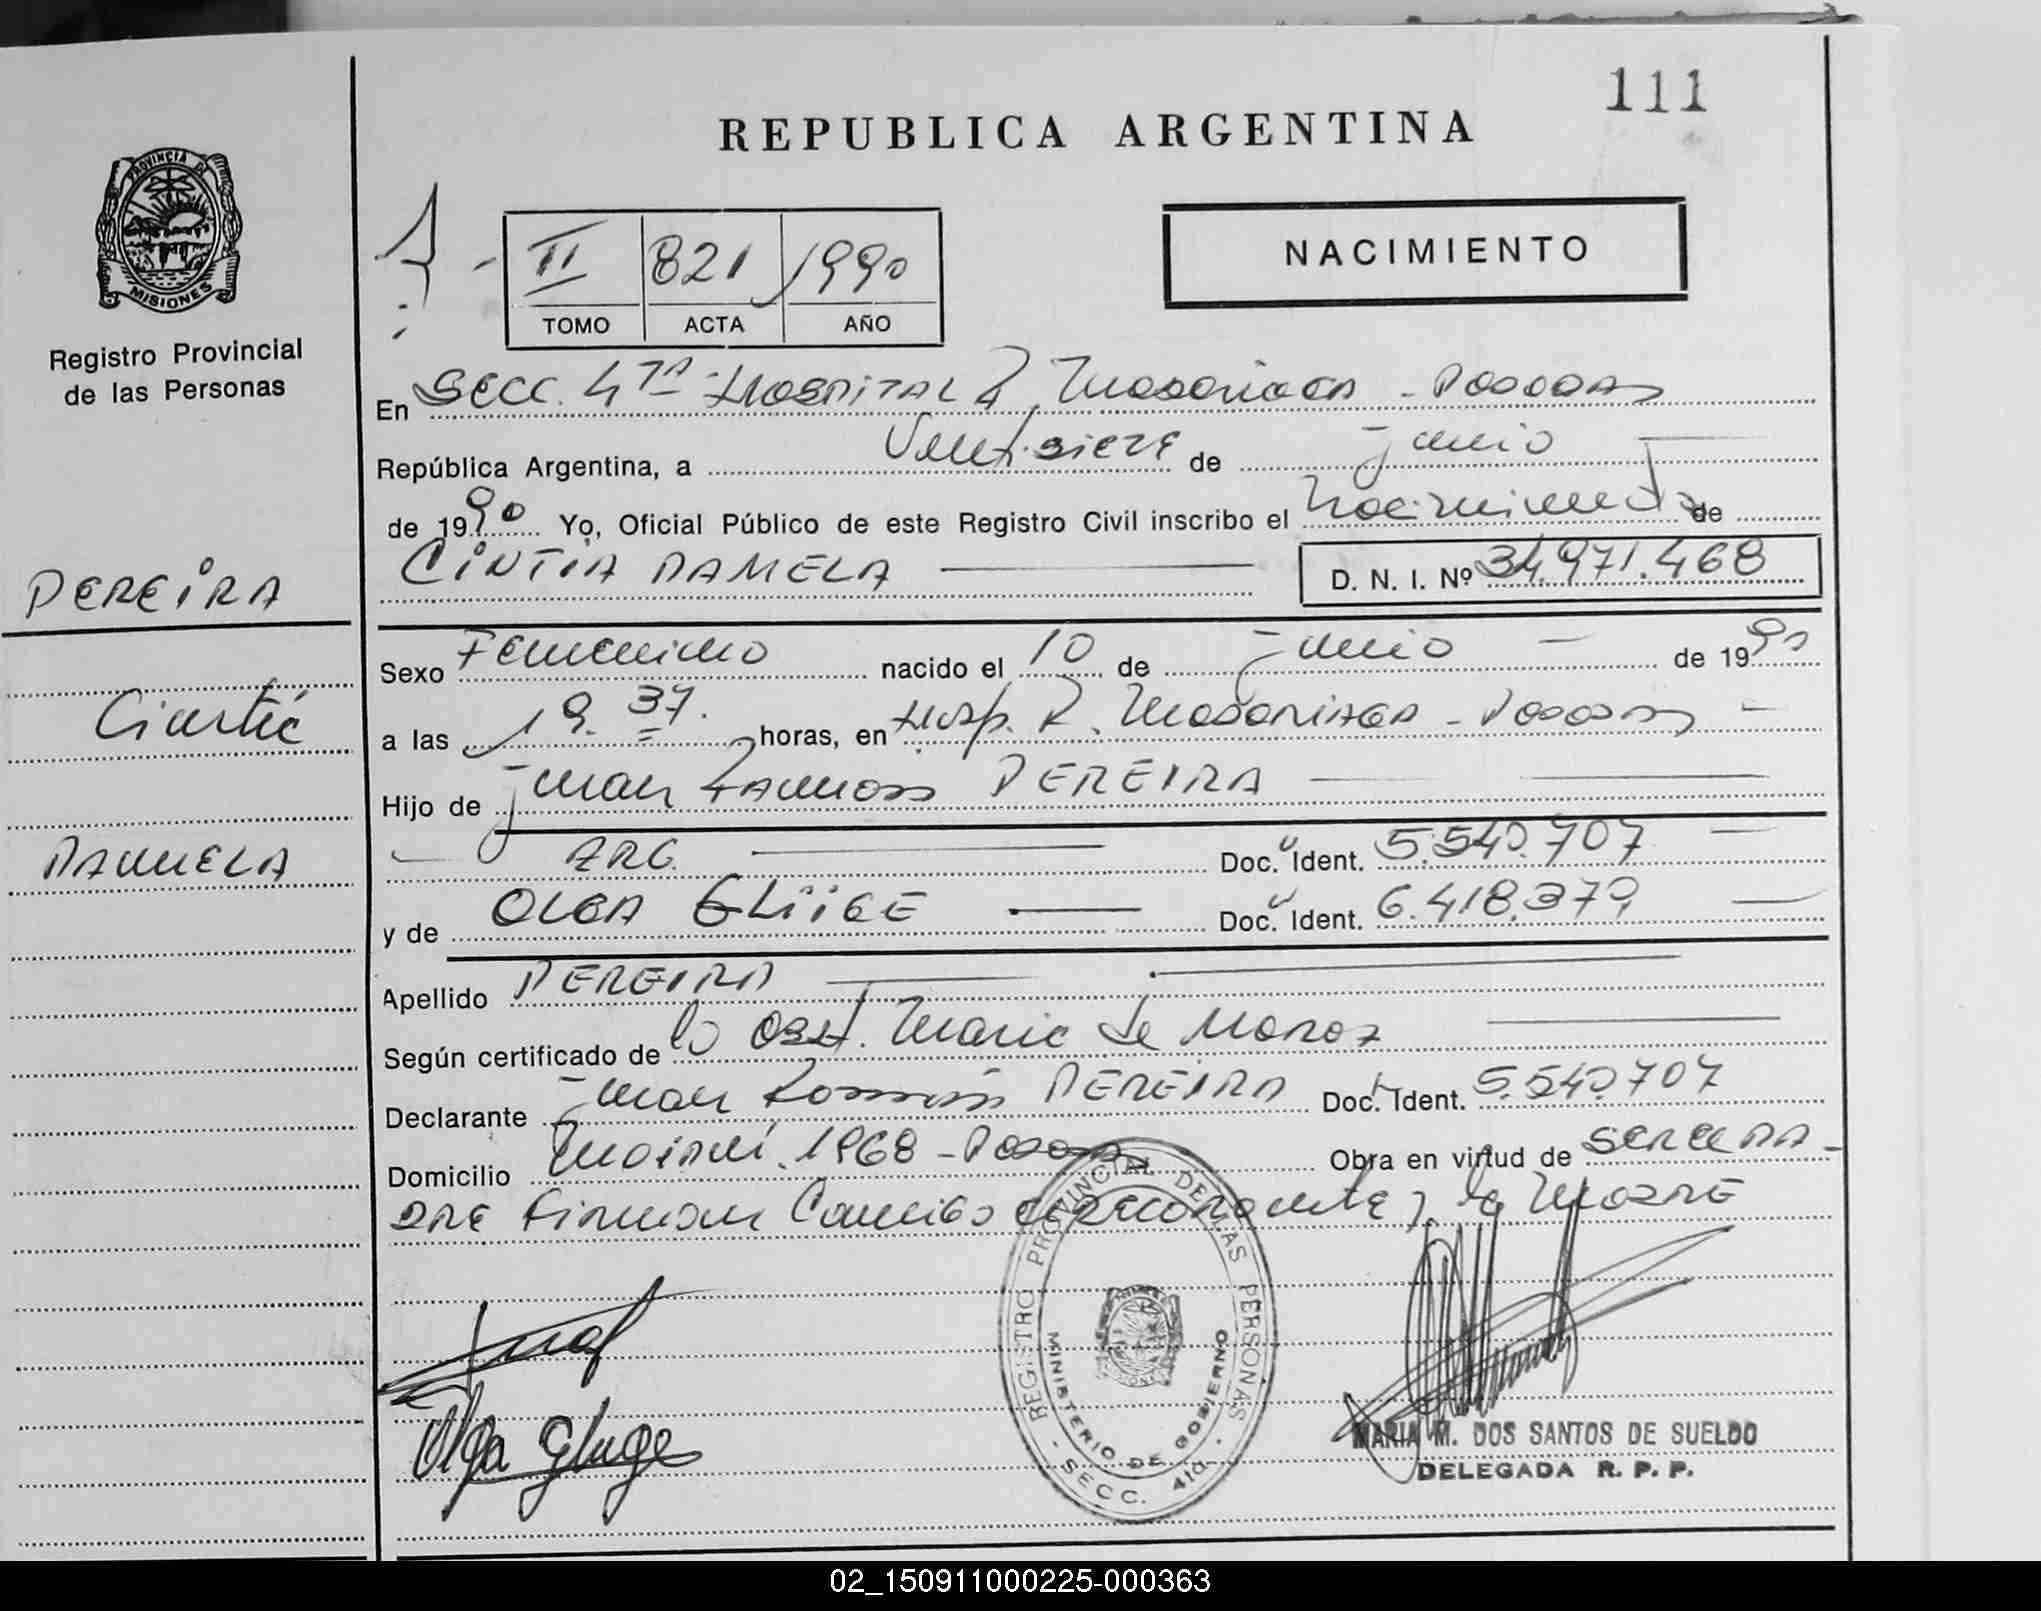 111
REPUBLICA ARGENTINA
PROVINCIA DE
MISIONES
Registro Provincial
de las Personas
II 821 1990
TOMO ACTA AÑO
NACIMIENTO
En SECC. 4TA HOSPITAL R. MADARIAGA - POSADAS
República Argentina, a Veintisiete de junio
de 1990 Yo, Oficial Público de este Registro Civil inscribo el Nacimiento de
CINTIA PAMELA D. N. I. Nº 34.971.468
PEREIRA
Cintia
PAMELA
Sexo Femenino nacido el 10 de junio de 1990
a las 19.37. horas, en Hosp. R. MADARIAGA - POSADAS
Hijo de Juan Ramón PEREIRA
ARG. Doc. Ident. 5.540.707
y de OLGA GLÜGE Doc. Ident. 6.418.379
Apellido PEREIRA
Según certificado de la Obst. Maria de
Declarante Juan Ramón PEREIRA Doc. Ident. 5.540.707
Domicilio 1968 - Posadas Obra en virtud de SER EL PA-
DRE Firman Conmigo el declarante y la MADRE
REGISTRO PROVINCIAL DE LAS PERSONAS
MINISTERIO DE GOBIERNO
SECC. 4ta.
Olga Gluge
MARIA M. DOS SANTOS DE SUELDO
DELEGADA R. P. P.
02_150911000225-000363